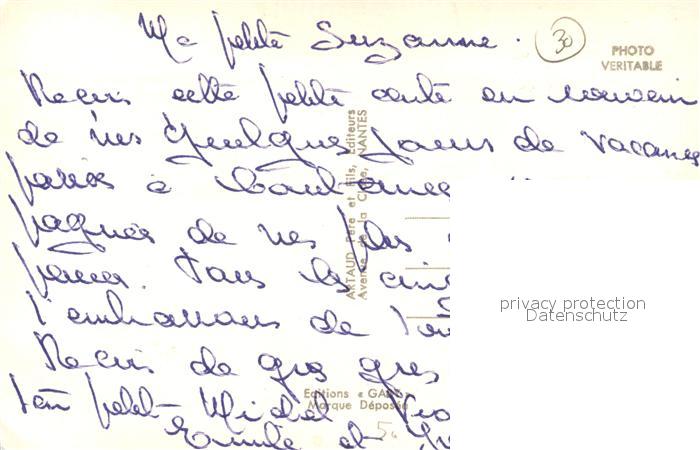 Ma petite Suzanne.
30
PHOTO
VERITABLE
Reçois cette petite carte en souvenir
de nos quelques jours de vacances
passés à
pagnés de nos plus
Tous les cinq
t'embrassons de tou
Reçois de gros gros
ton petit Michel
Emile et
ARTAUD Père et Fils, Editeurs
Avenue de la Close, NANTES
Editions « GABY »
Marque Déposée
privacy protection
Datenschutz